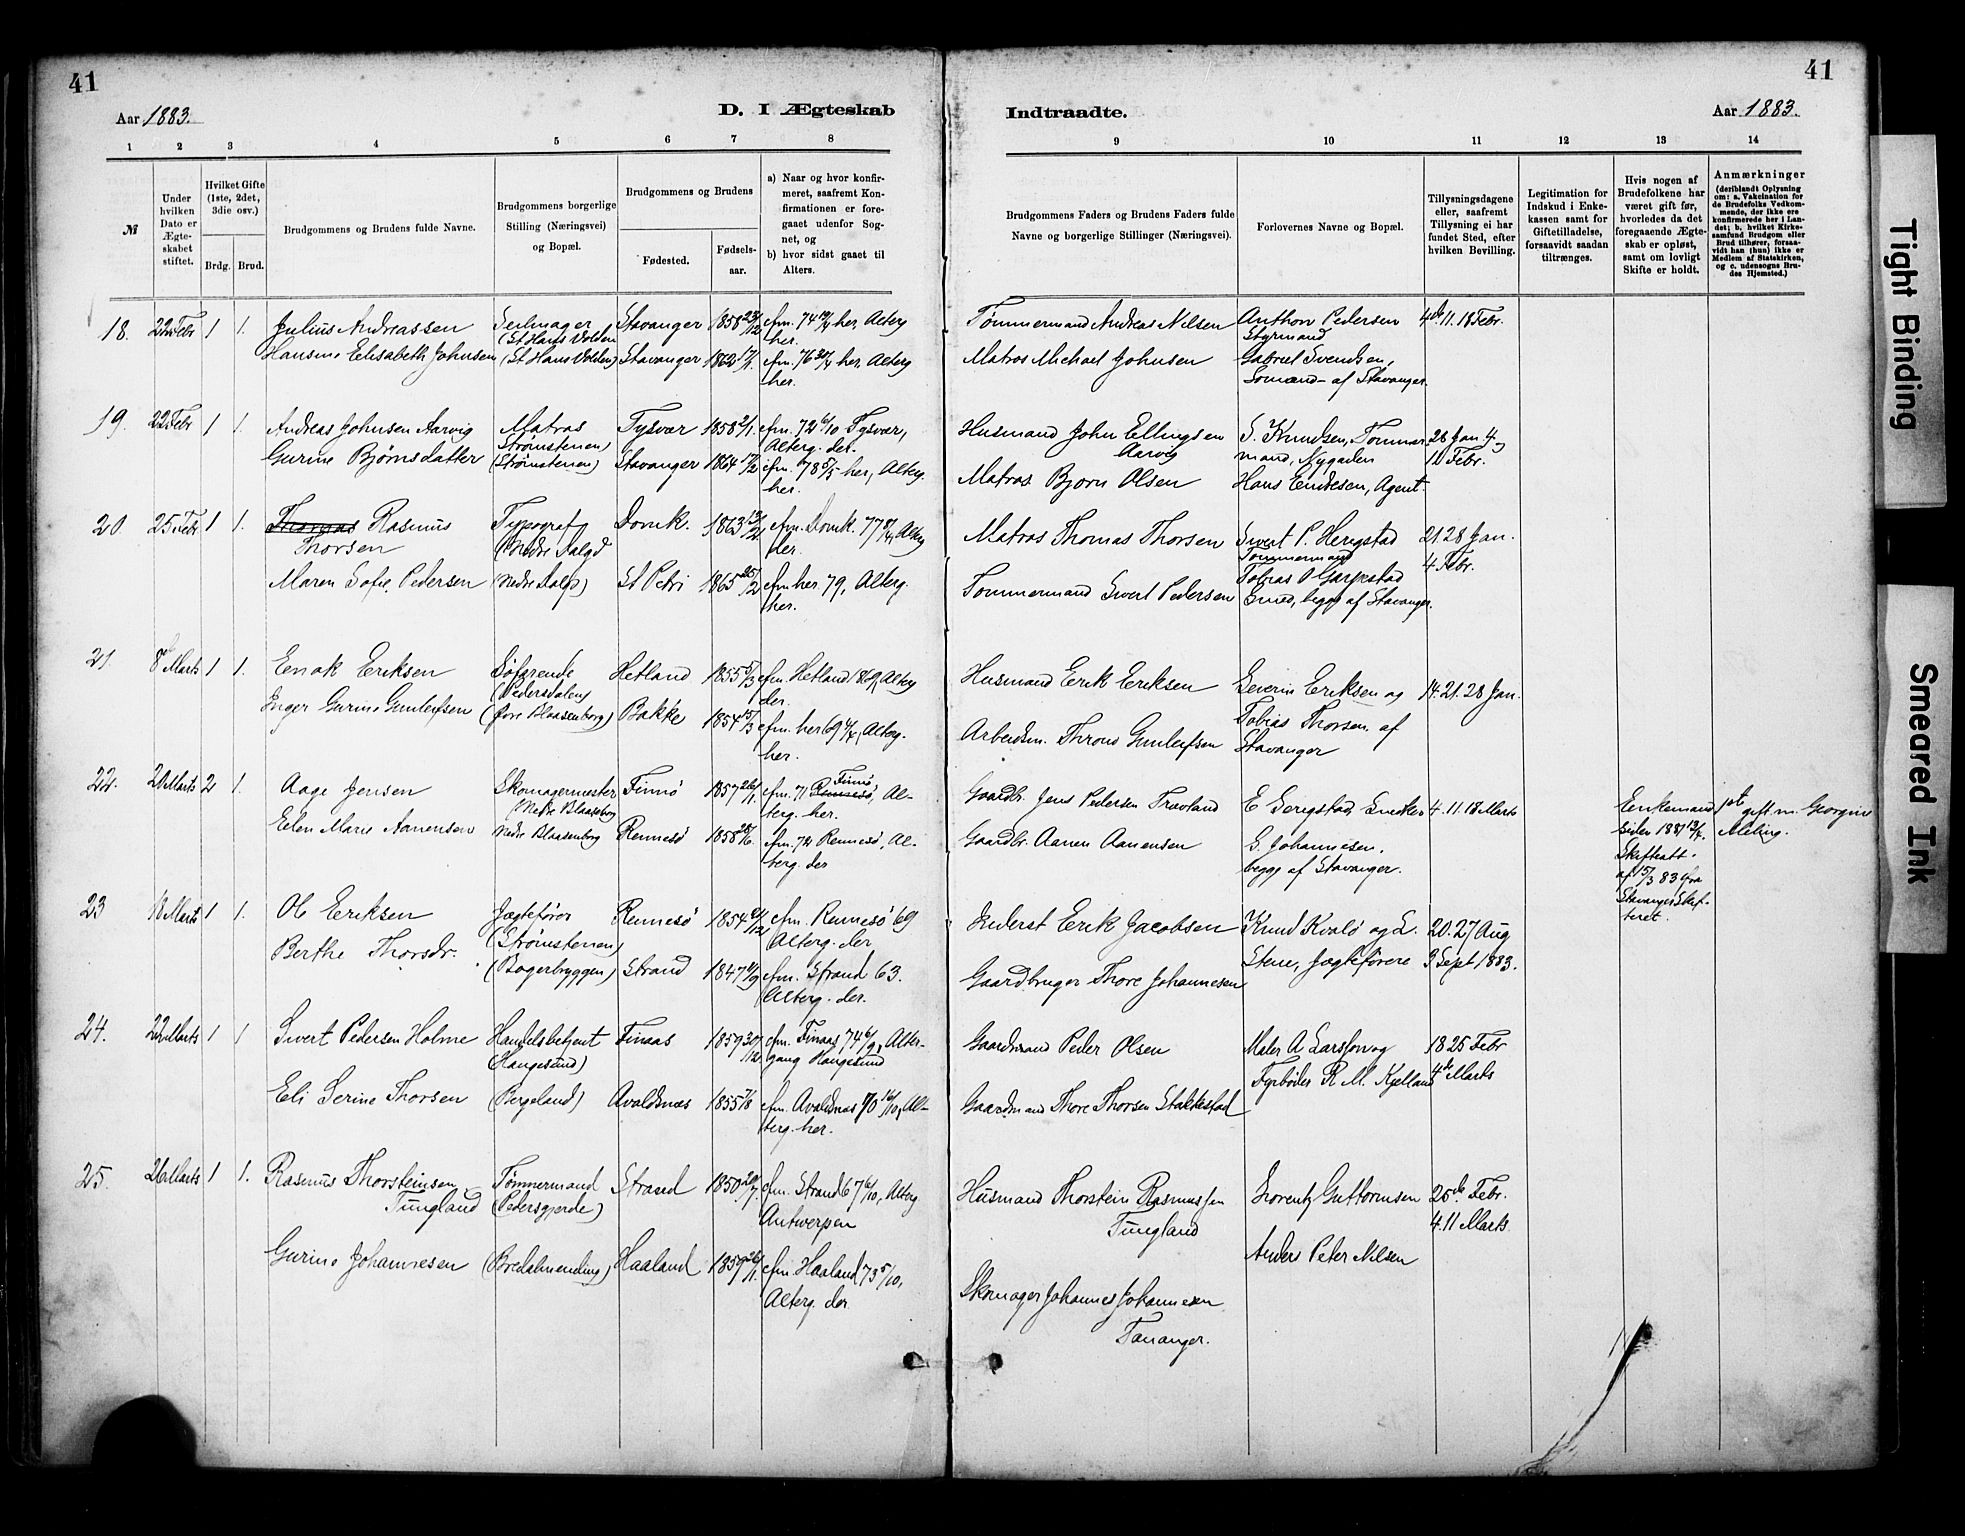 41
41
Aar 1883.
D. I Ægteskab
Indtraadte.
Aar 1883.
1 2 3 4 5 6 7 8
9 10 11 12 13 14
№
Under hvilken Dato er Ægteskabet stiftet.
Hvilket Gifte (1ste, 2det, 3die osv.)
Brdg. Brud.
Brudgommens og Brudens fulde Navne.
Brudgommens borgerlige Stilling (Næringsvei) og Bopæl.
Brudgommens og Brudens
Fødested.
Fødselsaar.
a) Naar og hvor konfirmeret, saafremt Konfirmationen er foregaaet udenfor Sognet, og
b) hvor sidst gaaet til Alters.
Brudgommens Faders og Brudens Faders fulde Navne og borgerlige Stillinger (Næringsvei).
Forlovernes Navne og Bopæl.
Tillysningsdagene eller, saafremt Tillysning ei har fundet Sted, efter hvilken Bevilling.
Legitimation for Indskud i Enkekassen samt for Giftetilladelse, forsaavidt saadan tiltrænges.
Hvis nogen af Brudefolkene har været gift før, hvorledes da det foregaaende Ægteskab er opløst, samt om lovligt Skifte er holdt.
Anmærkninger
(deriblandt Oplysning om: a. Vakcination for de Brudefolks Vedkommende, der ikke ere konfirmerede her i Landet; b. hvilket Kirkesamfund Brudgom eller Brud tilhører, forsaavidt han (hun) ikke er Medlem af Statskirken, og c. udensogns Brudes Hjemsted.)
18. 22 Febr 1 1. Julius Andreassen
Seilmager
(St Hans Volden
Stavanger 1858 23/12
cfm. 74 her, Alterg her.
Tømmermand Andreas Nilsen
Anthon Pedersen
Styrmand
4de 11. 18 Febr.
Hansine Elisabeth Johnsen
(St Hans Volden)
Stavanger 1862 17/1.
cfm. 76 her, Alterg her.
Matros Michael Johnsen
Gabriel Svendsen,
Sømænd af Stavanger.
19. 22 Febr 1 1. Andreas Johnsen Aarvig
Matros
Strømstenen)
Tysvær 1858 2/1.
cfm. 72 6/10 Tysvær,
Alterg. der.
Husmand John Ellingsen
Aarvig
S. Knudsen, Tømmermand, Nygaden
28 Jan. 4
11 Febr.
Gurine Bjørnsdatter
(Strømstenen)
Stavanger 1864 17/2
cfm. 78 5/5 her, Alterg. her.
Matros Bjørn Olsen
Hans Endresen, Agent.
20. 25 Febr 1 1. Thomas Rasmus
Thorsen
Typograf
(Nedre Dalgd
Domk. 1863
cfm. Domk. 77, Alterg der.
Matros Thomas Thorsen
Sivert P. Herigstad
Tømmermand
21. 28 Jan.
4 Febr.
Maren Sofie Pedersen
St Petri 1865 25/2
cfm her 79, Alterg. her.
Tømmermand Sivert Pedersen
Tobias O Garpestad
Smed, begge af Stavanger.
21. 8 Marts 1 1. Enok Eriksen
Søfarende
(Pedersdalen)
Hetland 1855 5/3
cfm. Hetland 869, Alterg der.
Husmand Erik Eriksen
Severin Eriksen og
14. 21. 28 Jan.
Inger Gurine Gunleifsen
(Øvre Blaasenborg)
Bakke 1854 15/3
cfm. her 69 4/4, Alterg. her.
Arbeidsm. Thrond Gunleifsen
Tobias Thorsen af
Stavanger
22. 20 Marts 2 1. Aage Jensen
Skomagermester
(Nedre Blaasenborg
Finnø 1857 26/11.
cfm. 71 Finnø Rennesø, Alterg. her.
Gaardbr. Jens Pedersen Travland
E Serigstad, Snedker
4. 11. 18 Marts
Enkemand
siden 1881 13/4.
Skifteatt.
af 15/3 83 fra
Stavanger Skifteret.
1ste gift m. Georgine
Meling.
Elen Marie Aanensen
Nedre Blaasenborg
Rennesø 1858 28/6.
cfm. 72 Rennesø, Alterg. der
Gaardbr. Aanen Aanensen
S. Johannesen.
begge af Stavanger.
23 18 Marts 1 1. Ole Eriksen
Jægtefører
(Strømstenen)
Rennesø 1854 21/12
cfm. Rennesø 69
Alterg. der
Inderst Erik Jacobsen
Knud Kvalø og L.
Stene, Jægteførere
20. 27 Aug
3 Sept 1883.
Berthe Thorsdr.
(Bagerbryggen)
Strand 1847 11/9
cfm. Strand 63.
Alterg. der.
Gaardbruger Thore Johannesen
24. 22 Marts 1 1 Sivert Pedersen Holme
Handelsbetjent
(Haugesund)
Finaas 1859 30/12
cfm. Finaas 74 6/9, Altergang Haugesund
Gaardmand Peder Olsen
Maler A Larsson og
18 25 Febr
4de Marts
Eli Serine Thorsen
(Bergeland)
Avaldsnæs 1855 7/8
cfm. Avaldsnæs 70 16/10, Alterg. her.
Gaardmand Thore Thorsen Stakkestad
Fyrbøder R M. Kjelland
25. 26 Marts 1 1. Rasmus Thorsteinsen
Tungland
Tømmermand
(Pedersgjerde)
Strand 1850 20/7.
cfm. Strand 67 6/10, Alterg
Antwerpen
Husmand Thorstein Rasmussen
Tungland
Lorentz Guttormsen
25de Febr.
4. 11 Marts
Gurine Johannesen
(Bredalmending)
Haaland 1859 26/11.
cfm. Haaland 73 5/10,
Alterg. der.
Skomager Johannes Johannesen
Tananger.
Anders Peter Nilsen
Tight Binding
Smeared Ink